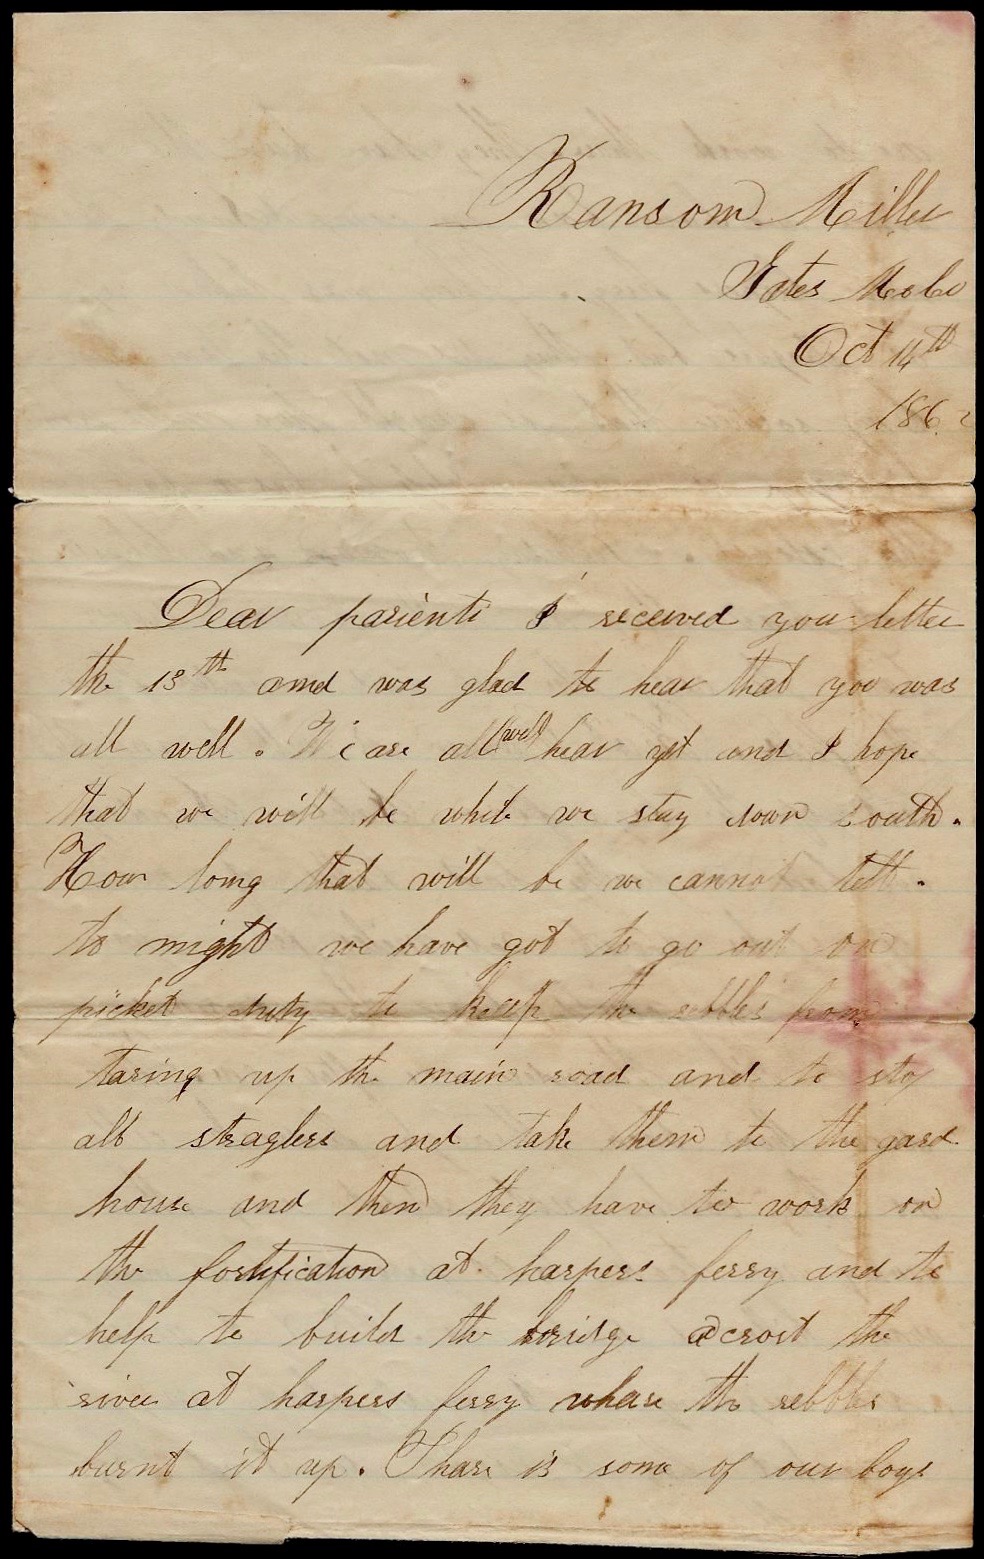 Ransom Miller
Gates Mo Co
Oct 14th
1862
Dear parients I received you letter
the 13th and was glad to hear that you was
all well. We are all well hear yet and I hope
that we will be while we stay down south.
How long that will be we cannot tell.
to night we have got to go out on
picket duty to keep the rebbles from
taring up the main road and to stop
all straglers and take them to the gard
house and then they have to work on
the fortification at harpers ferry and to
help to build the bridge acrost the
river at harpers ferry whare the rebbles
burnt it up. Thare is some of our boys